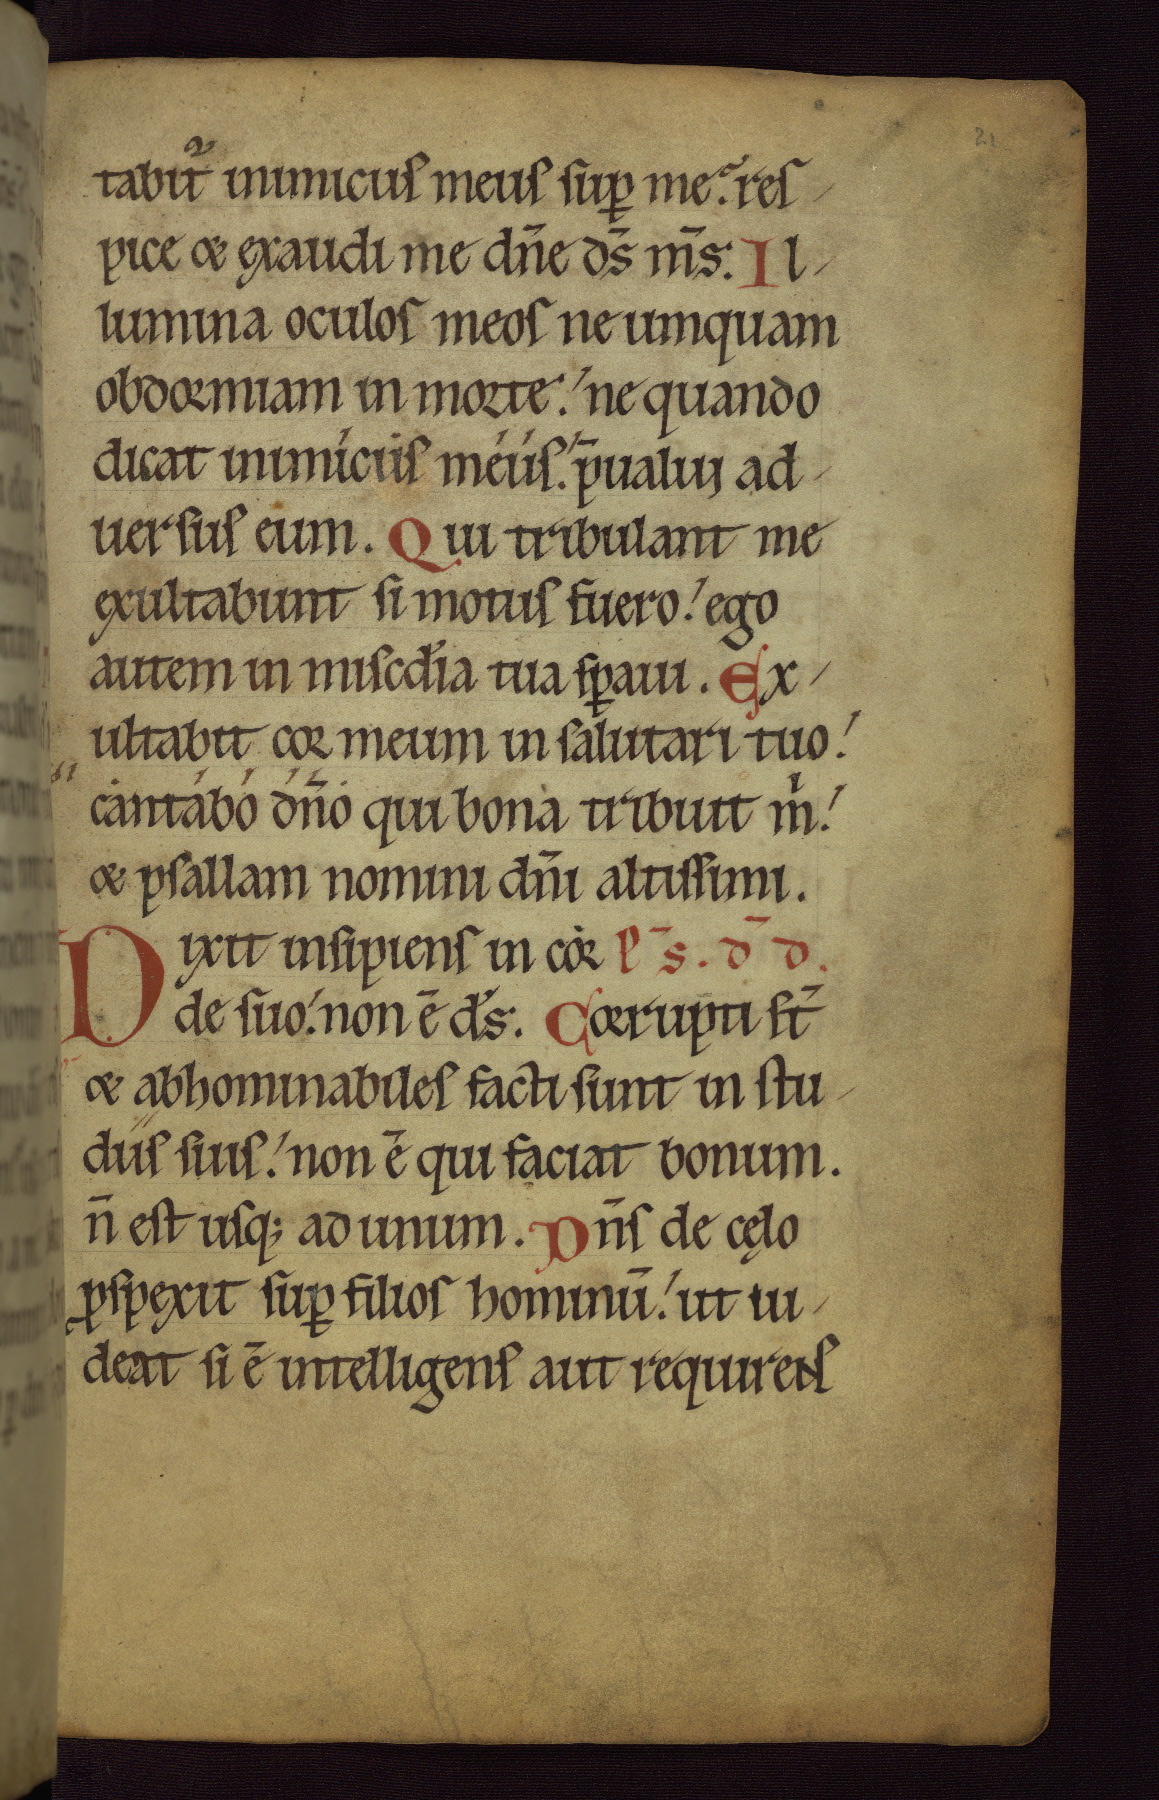 21
tabit᷑ inimicus meus sup̲ me. res-
pice & exaudi me dn̄e ds̄ ms̄. Il-
lumina oculos meos ne umquam
obdormiam in morte. ne quando
dicat inimicus meus. p̄ualui ad-
uersus eum. Qui tribulant me
exultabunt si motus fuero. ego
autem in miscd̄ia tua sꝑaui. Ex-
ultabit cor meum in salutari tuo.
cantabo dn̄o qui bona tribuit m̍.
& psallam nomini dn̄i altissimi.
Dixit insipiens in cor Ps̄. d̄ d.
de suo. non ē ds̄. Corrupti st̄
& abhominabiles facti sunt in stu-
diis suis. non ē qui faciat bonum.
n̄ est usq; ad unum. Dn̄s de cęlo
ꝓspexit suꝑ filios hominū. ut ui-
deat si ē intelligens aut requirens